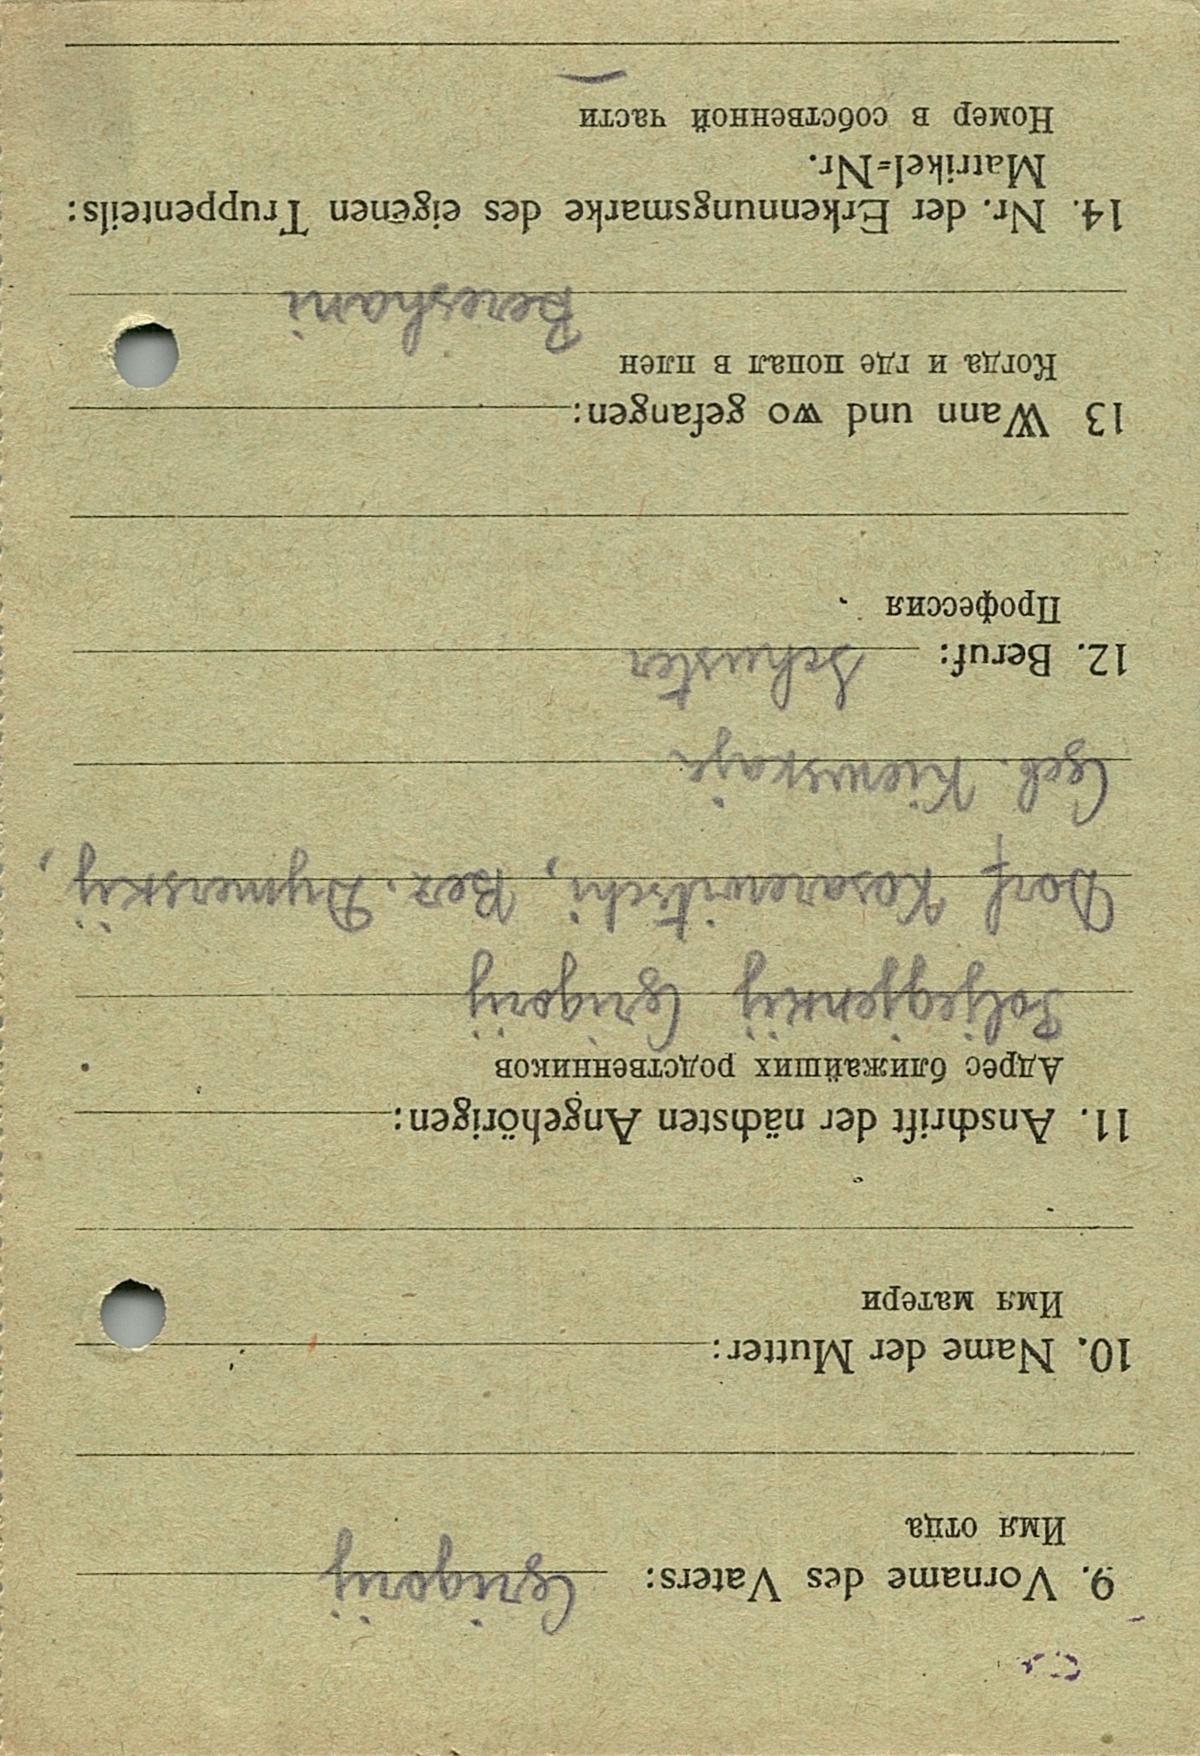 9. Vorname des Vaters: Grigorij
Имя отца
10. Name der Mutter:
Имя матери
11. Anschrift der nächsten Angehörigen:
Адрес ближайших родственников
Grigorij
Dorf Kosarewitschi, Bez. Dymerskij,
Geb. Kiewskaja
12. Beruf: Schuster
Профессия
13 Wann und wo gefangen:
Когда и где попал в плен
Bereshani
14. Nr. der Erkennungsmarke des eigenen Truppenteils:
Matrikel=Nr.
Номер в собственной части
—